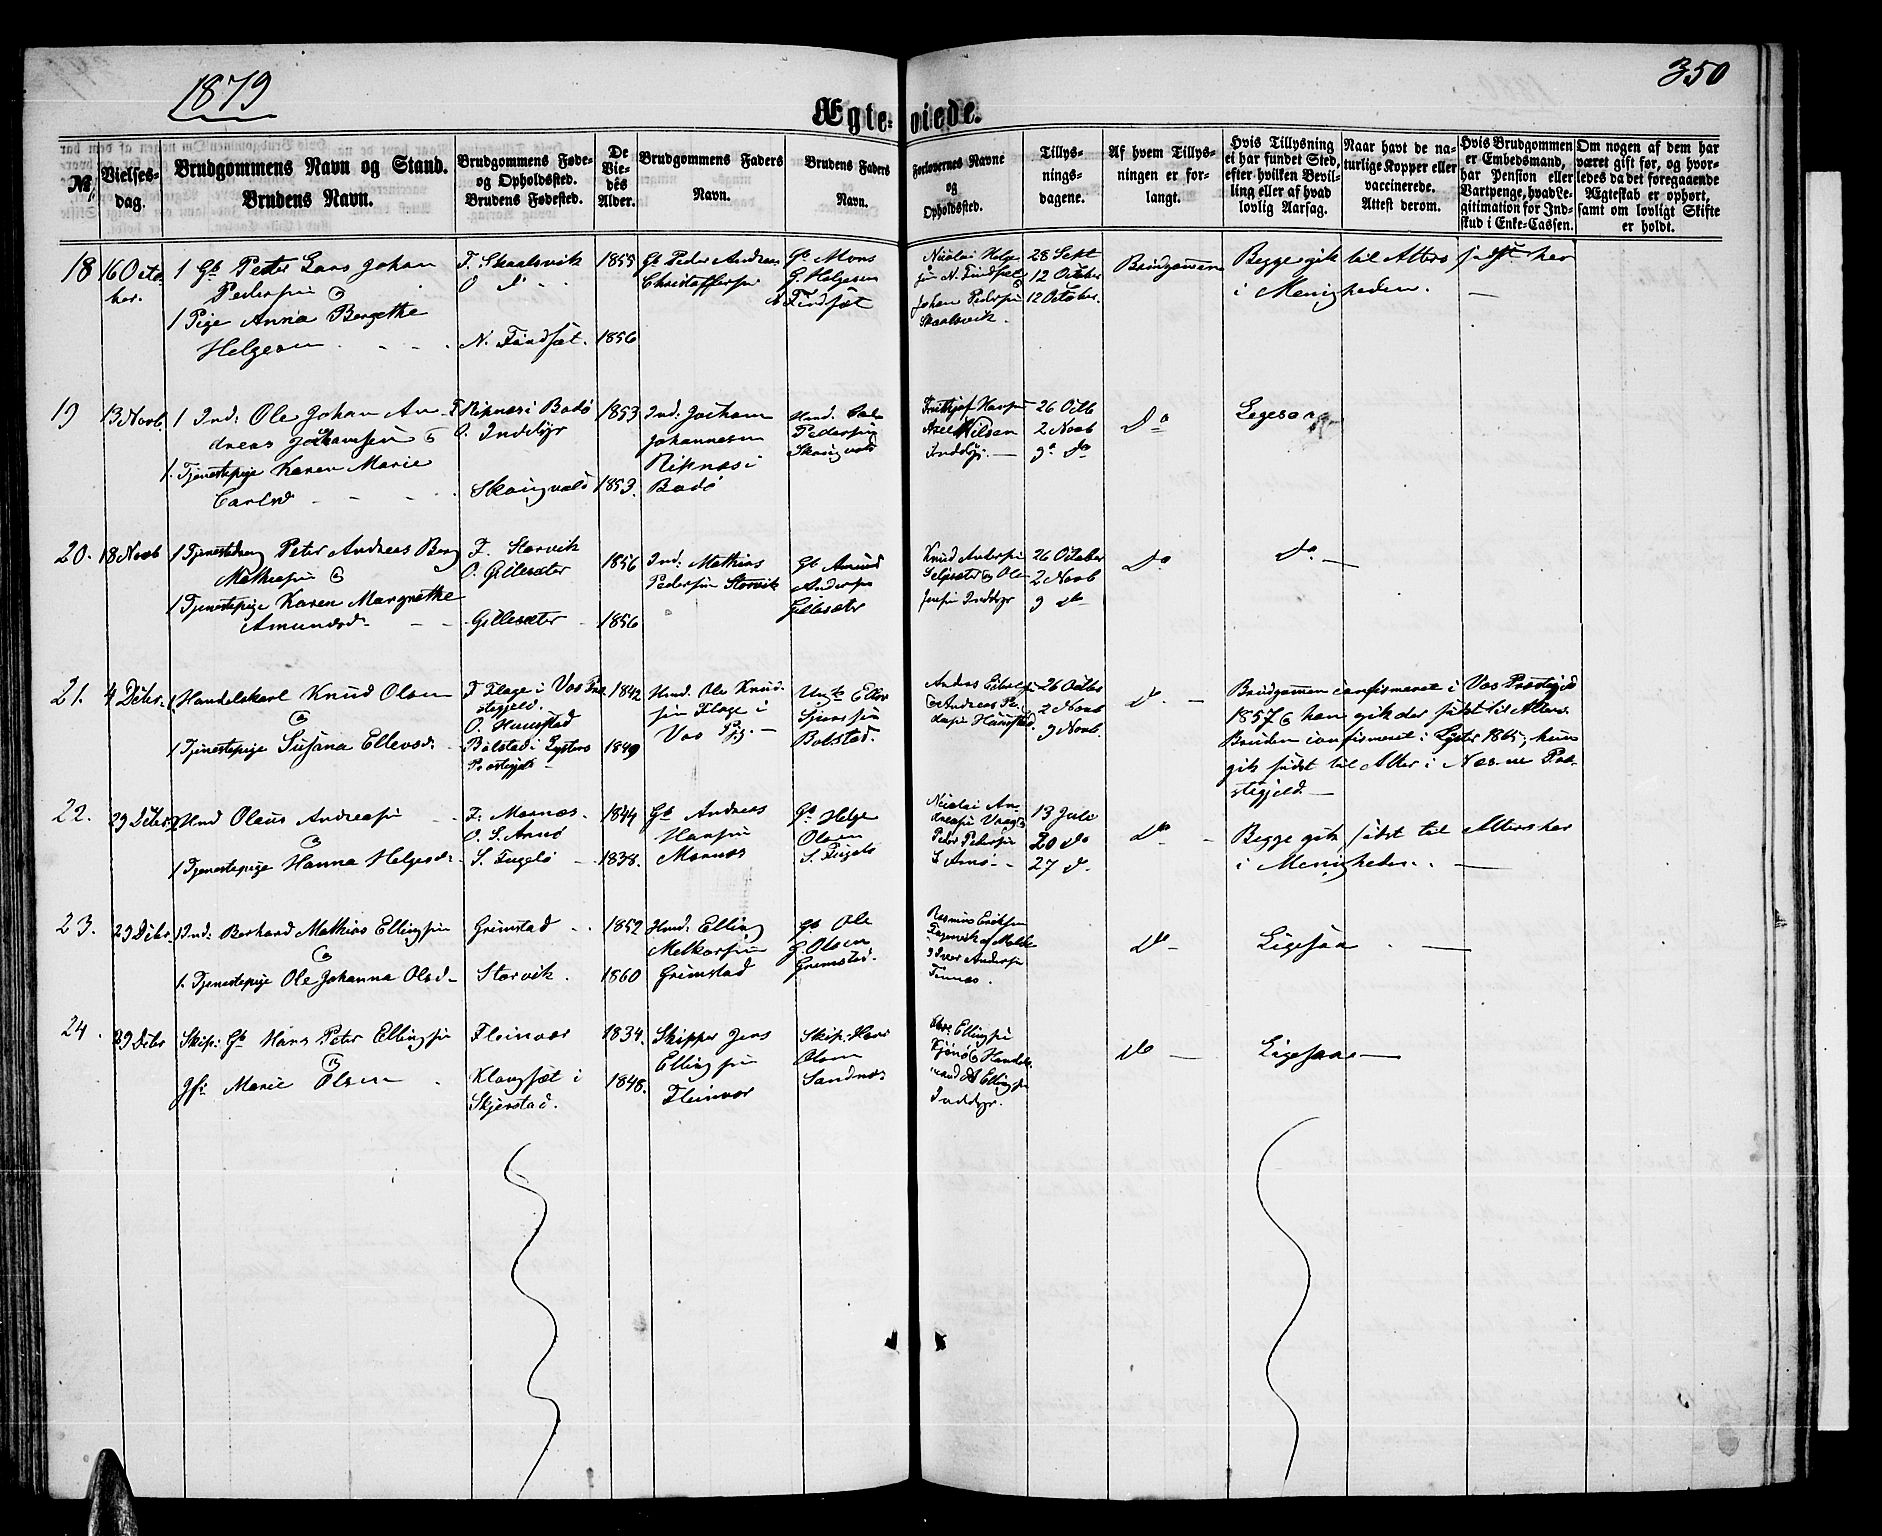 1879
350
Ægte-viede.
№
Vielses-
dag.
Brudgommens Navn og Stand.
Brudens Navn.
Brudgommens Føde-
og Opholdssted.
Brudens Fødested.
De
Vie-
des
Alder.
Brudgommens Faders
Navn.
Brudens Faders
Navn.
Forlovernes Navne
og
Opholdssted.
Tillys-
nings-
dagene.
Af hvem Tillys-
ningen er for-
langt.
Hvis Tillysning
ei har fundet Sted,
efter hvilken Bevil-
ling eller af hvad
lovlig Aarsag.
Naar havt de na-
turlige Kopper eller
vaccinerede.
Attest derom.
Hvis Brudgommen
er Embedsmand,
har Pension eller
Vartpenge, hvad Le-
gitimation for Ind-
skud i Enke-Cassen.
Om nogen af dem har
været gift før, og hvor-
ledes da det foregaaende
Ægteskab er ophørt,
samt om lovligt Skifte
er holdt.
18
16 Octo-
ber.
1 Gb Peder Lars Johan
Pedersen
1 Pige Anna Bergethe
Helgesen
F. Skaalsvik
O d
N. Findset.
1855
1856
Gb Peder Andreas
Christoffersen
Gb Mons
G. Helgesen
N Findsæt
Nicolai Helge-
sen N. Findsæt
Johan Pedersen
Skaalsvik.
28 Sept
12 October
12 October.
Brudgommen
Begge gik til Alters sidst her
i Menigheden. —
19
13 Novb.
1 Ind: Ole Johan An-
dreas Jochamsen
1. Tjenestepige Karen Marie
Carlsd
F. Ripnæs i Bodø
O. Inddyr
Skaugvold
1853
1853.
Ind: Jocham
Johannesen
Ripnæs i
Bodø
Hmd. Carl
Pedersen
Skaugvold
Fridthjof Hansen
Axel Nilsen
Inddyr. —
26 Octb
2 Novb
9d do
Do
Ligesaa
20.
18 Novb
1 Tjenestedreng Peter Andreas Berg
Mathisen
1 Tjenestepige Karen Margrethe
Amundsd
F. Storvik
O. Gillesæter
Gillesæter
1856
1856
Ind: Mathias
Pedersen Storvik
Gb Amund
Andersen
Gillesæter
Knud Andersen
Selsæter og Ole
Jensen Inddyr
26 October
2 Novb
9 do
Do
Do —
21.
4 Decbr.
1 Handelskarl Knud Olsen
1 Tjenestepige Susana Ellevsd.
F Flage i Vos Præ-
stegjeld.
O. Haugstad
Bolstad i Lysters
Præstegjeld
1842
1849
Hmd. Ole Knud-
sen Flage i
Vos Pgj. —
Ungk Ellev
Sjursen
Bolstad.
26 Octbr
2 Novb
9 Novb.
d. —
Brudgommen confirmeret i Vos Præstegjeld
1857 og han gik der sidst til Alters.
Bruden confirmeret i Lyster 1865; hun
gik sidst til Alter i Næsne Præ-
stegjeld. —
22.
29 Decbr.
1 Hmd Olaus Andreasen
1 Tjenestepige Hanna Helgesd.
F. Mornæs.
O. S. Arnø
S. Fugelø
1844
1838.
Gb Andreas
Hansen
Mornæs
Gb Helge
Olsen
S. Fugelø
Nicolai An-
dreasen
Peder Pedersen
S Arnø —
13 Juli
20 do
27 d.
Do —
Begge gik sidst til Alters her
i Menigheden. —
23.
29 Decbr.
1 Ind: Berhard Mathias Ellingsen
1. Tjenestepige Ole Johanna Olsd
Grimstad
Storvik.
1852
1860
Hmd: Elling
Melkersen
Grimstad
Gb Ole
G Olsen
Grimstad.
Rasmus Eriksen
Do —
Ligesaa —
24.
29 Decbr
Skip: Gb Hans Peter Ellingsen
Marie Olsen
Fleinvær
Klongsæt i
Skjerstad.
1834.
1848.
Skipper Jens
Ellingsen
Fleinvær
Skip. Hans
Olsen
Sandnæs
Ellingsen
Kjønø Handels-
mand Ellingsen
Inddyr.
do —
Ligesaa —